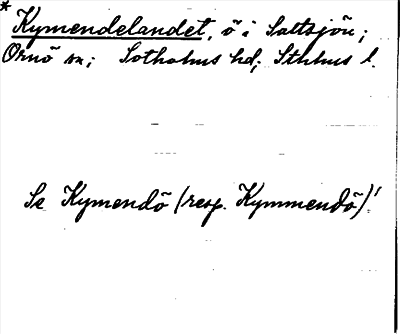 * Kymendelandet, ö i Saltsjön;
Ornö sn; Sotholms hd; Sthlms l.
Se Kymendö (resp. Kymmendö)!